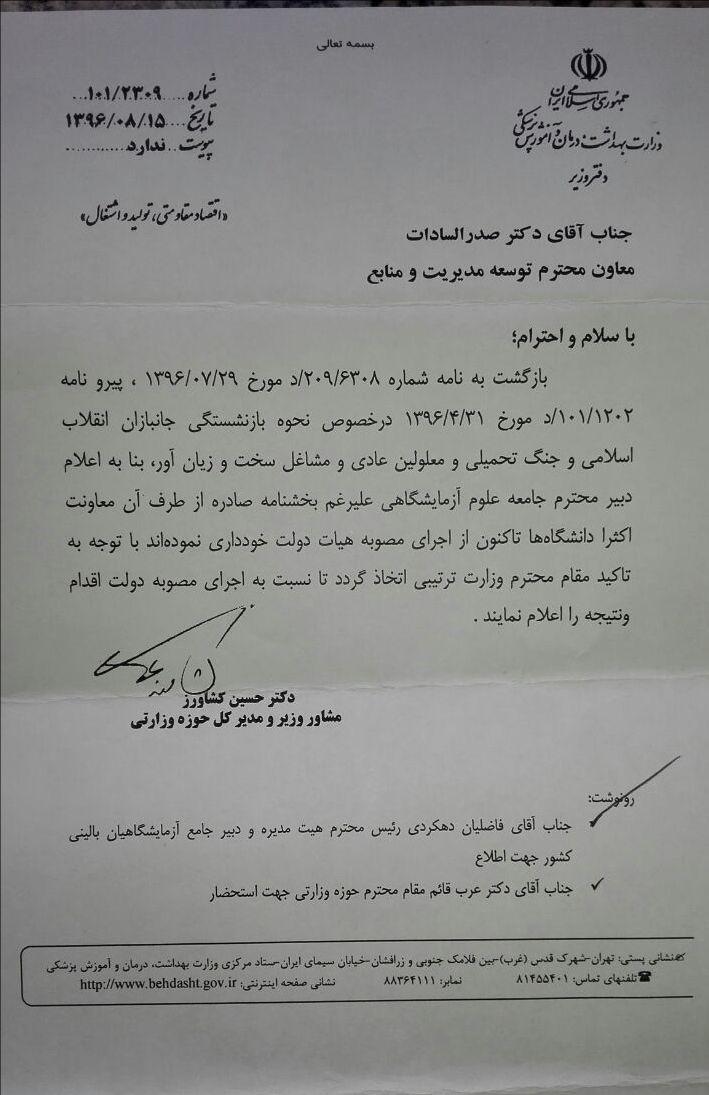 بسمه تعالی
جمهوری اسلامی ایران
وزارت بهداشت، درمان و آموزش پزشکی
دفتر وزیر
شماره.....۱۰۱/۲۳۰۹...
تاریخ....۱۳۹۶/۰۸/۱۵
پیوست..ندارد............
«اقتصاد مقاومتی، تولید و اشتغال»
جناب آقای دکتر صدرالسادات
معاون محترم توسعه مدیریت و منابع
با سلام و احترام؛
بازگشت به نامه شماره ۲۰۹/۶۳۰۸/د مورخ ۱۳۹۶/۰۷/۲۹ ، پیرو نامه
۱۰۱/۱۲۰۲/د مورخ ۱۳۹۶/۴/۳۱ درخصوص نحوه بازنشستگی جانبازان انقلاب
اسلامی و جنگ تحمیلی و معلولین عادی و مشاغل سخت و زیان آور، بنا به اعلام
دبیر محترم جامعه علوم آزمایشگاهی علیرغم بخشنامه صادره از طرف آن معاونت
اکثرا دانشگاه‌ها تاکنون از اجرای مصوبه هیات دولت خودداری نموده‌اند با توجه به
تاکید مقام محترم وزارت ترتیبی اتخاذ گردد تا نسبت به اجرای مصوبه دولت اقدام
ونتیجه را اعلام نمایند .
دکتر حسین کشاورز
مشاور وزیر و مدیر کل حوزه وزارتی
رونوشت:
✓ جناب آقای فاضلیان دهکردی رئیس محترم هیت مدیره و دبیر جامع آزمایشگاهیان بالینی
کشور جهت اطلاع
✓ جناب آقای دکتر عرب قائم مقام محترم حوزه وزارتی جهت استحضار
نشانی پستی: تهران-شهرک قدس (غرب)-بین فلامک جنوبی و زرافشان-خیابان سیمای ایران-ستاد مرکزی وزارت بهداشت، درمان و آموزش پزشکی
☎تلفنهای تماس: ۸۱۴۵۵۴۰۱ نمابر: ۸۸۳۶۴۱۱۱ نشانی صفحه اینترنتی: http://www.behdasht.gov.ir